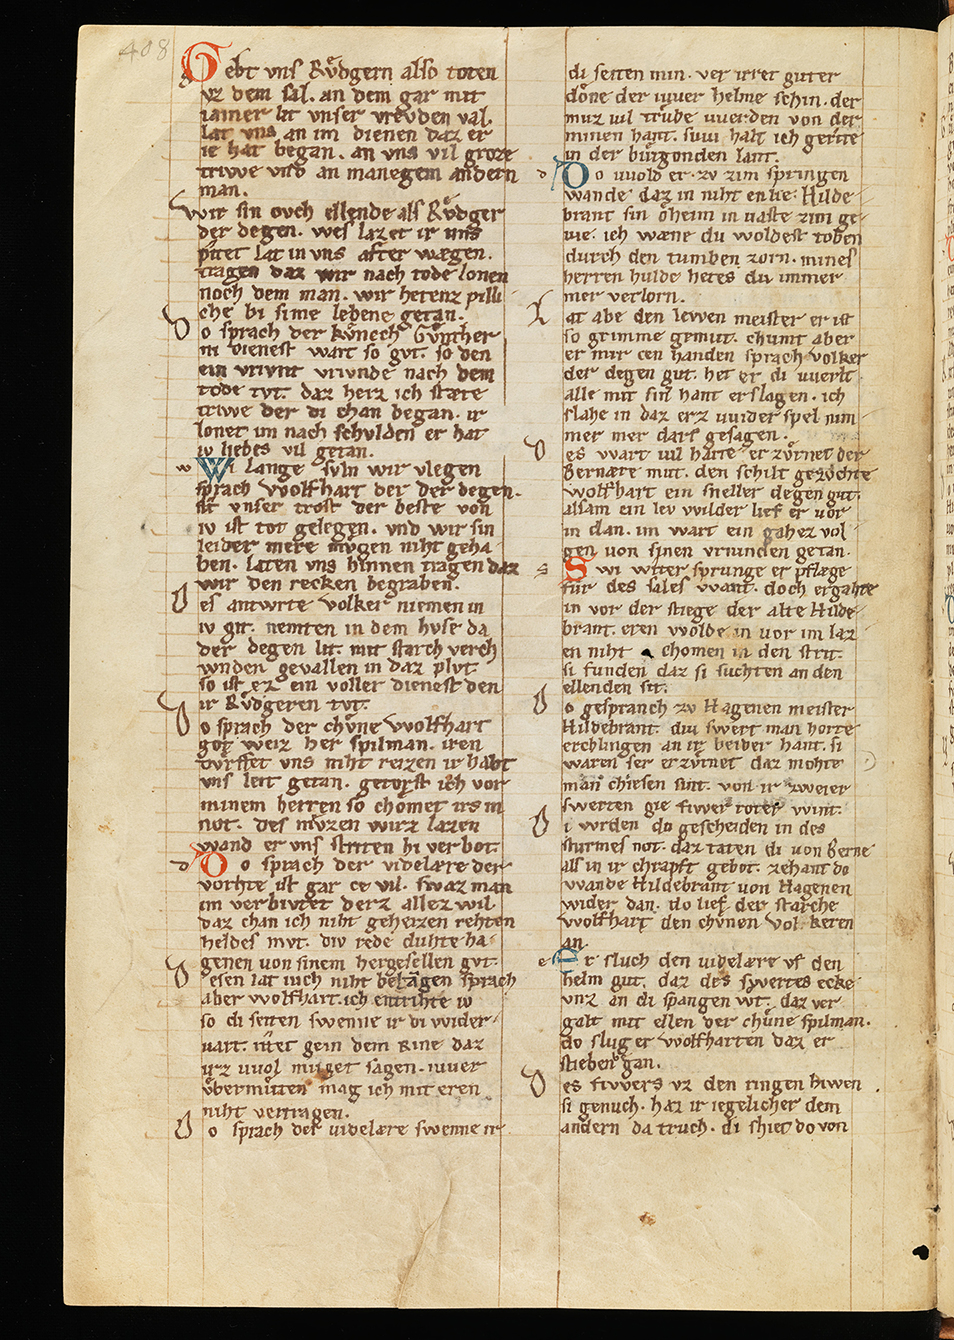 408
Gebt vns Růdgern also toten
vz dem sal. an dem gar mit
iamer lit vnser vrevden val.
lat vns an im dienen daz er
ie hat began. an vns vil groze
triwe vnd an manegem andern
man.
wir sin ovch ellende als Růdger
der degen. wes lazet ir uns
piten lat in vns after wægen.
tragen daz wir nach tode lonen
noch dem man. wir hetenz pilli
che bi sime lebene getan.
Do sprach der kůnech Gůnther
ni dienest wart so gvt. so den
ein vrivnt vrivnde nach dem
tode tvt. daz heiz ich stæte
triwe der di chan began. ir
lonet im nach schvlden er hat
iv liebes vil getan.
w Wi lange svln wir vlegen
sprach wolfhart der der degen.
sit vnser trost der beste von
iv ist tot gelegen. vnd wir sin
leider mere mvgen niht geha
ben. laten vns hinnen tragen daz
wir den recken begraben.
Des antwrte volker niemen in
iv git. nemten in dem hvse da
der degen lit. mit starch verch
wnden gevallen in daz plvt.
so ist ez ein voller dienest den
ir Růdgeren tvt.
Do sprach der chůne wolfhart
got weiz her spilman. iren
tvrffet vns niht reizen ir habt
vns leit getan. getorst ich vor
minem herren so chomet irs in
not. des mvzen wirz lazen
wand er vns striten hi verbot.
d Do sprach der videlære der
vorhte ist gar ce vil. swaz man
im verbivtet derz allez wil
daz chan ich niht geheizen rehten
heldes mvt. div rede duhte ha
genen uon sinem hergesellen gvt.
Desen lat iuch niht belangen sprach
aber wolfhart. ich entrihte iv
so di seiten swenne ir di wider
uart. ritet gein dem Rine daz
irz uuol muget sagen. iuuer
ůbermůten mag ich mit eren
niht vertragen.
Do sprach der uidelære swenne ir
di seiten min. ver irret guter
dőne der iuuer helme schin. der
muz uil trůbe uuerden von der
minen hant. suui halt ich gerite
in der bůrgonden lant.
d Do uuold er zv zim springen
wande daz in niht en lie. Hilde
brant sin őheim in uaste zim ge
uie. ich wæne du woldest toben
durch den tumben zorn. mines
herren hulde hetes du immer
mer verlorn.
Lat abe den lewen meister er ist
so grimme gemut. chumt aber
er mir cen handen sprach volker
der degen gut. het er di uuerlt
alle mit sin hant erslagen. ich
slahe in daz erz uuider spel nim
mer mer darf gesagen.
Des wart uil harte er zůrnet der
Bernære mut. den schilt gezochte
wolfhart ein sneller degen gut.
alsam ein lev wilder lief er uor
in dan. im wart ein gahez vol
gen uon sinen vriunden getan.
s Swi witer sprunge er pflæge
fur des sales want. doch ergahte
in vor der stiege der alte Hilde
brant. eren wolde in uor im laz
en niht chomen in den strit.
si funden daz si suchten an den
ellenden sit.
Do gespranch zv Hagenen meister
Hildebrant. diu swert man horte
erchlingen an ir beider hant. si
waren ser erzurnet daz mohte
man chiesen sint. von ir zweier
swerten gie fiwer roter wint.
Di wrden do gescheiden in des
sturmes not. daz taten di uon Berne
als in ir chrapft gebot. zehant do
wande Hildebrant uon Hagenen
wider dan. do lief der starche
wolfhart den chůnen volkeren
an.
e Er sluch den uidelære vf den
helm gut. daz des swertes ecke
vnz an di spangen wt. daz ver
galt mit ellen der chůne spilman.
do slug er wolfharten daz er
stieben gan.
Des fiwers vz den ringen hiwen
si genuch. haz ir iegelicher dem
andern da truch. di shiet do von